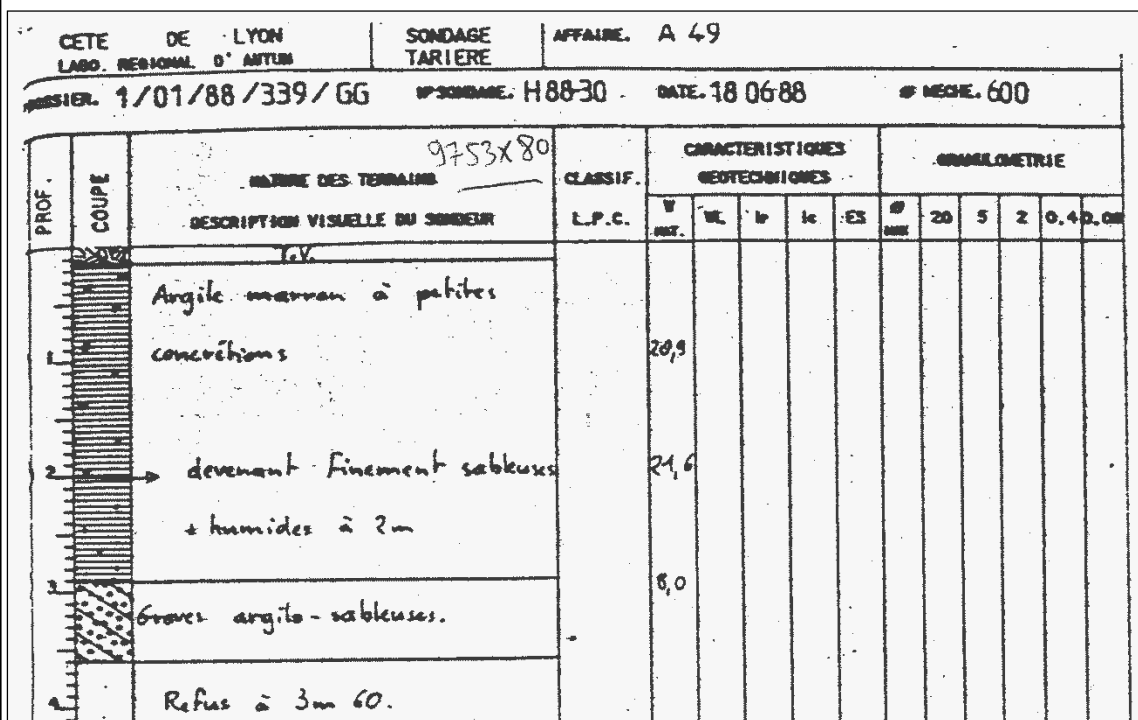 CETE DE LYON
LABO. REGIONAL D' AUTUN
SONDAGE
TARIERE
AFFAIRE. A 49
DOSSIER. 1/01/88/339/GG
N° SONDAGE. H88-30
DATE. 18 06 88
Ø MECHE. 600
PROF.
COUPE
9753X80
NATURE DES TERRAINS
DESCRIPTION VISUELLE DU SONDEUR
CLASSIF.
L.P.C.
CARACTERISTIQUES
GEOTECHNIQUES
GRANULOMETRIE
W
NAT.
WL
Ip
Ic
ES
Ø
MAX
20
5
2
0.4
0.08
T.V.
Argile marron à petites
1
concrétions
20,9
2
devenant finement sableuses
21,6
± humides à 2m
3
8,0
Graves argilo-sableuses.
4
Refus à 3m 60.